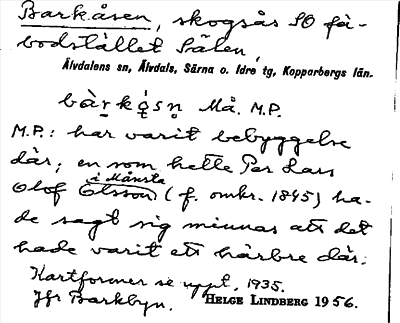 Barkåsen, skogsås SO fä-
bodstället Sälen,
Älvdalens sn, Älvdals, Särna o. Idre tg, Kopparbergs län.
bàrkǻsn̥ Må. M.P.
M.P.: har varit bebyggelse
där; en som hette Per Lars
i Månsta
Olof Olsson (f. omkr. 1845) ha-
de sagt sig minnas att det
hade varit ett härbre där.
Kartformer se uppt. 1935.
Jfr Barkbyn. HELGE LINDBERG 1956.